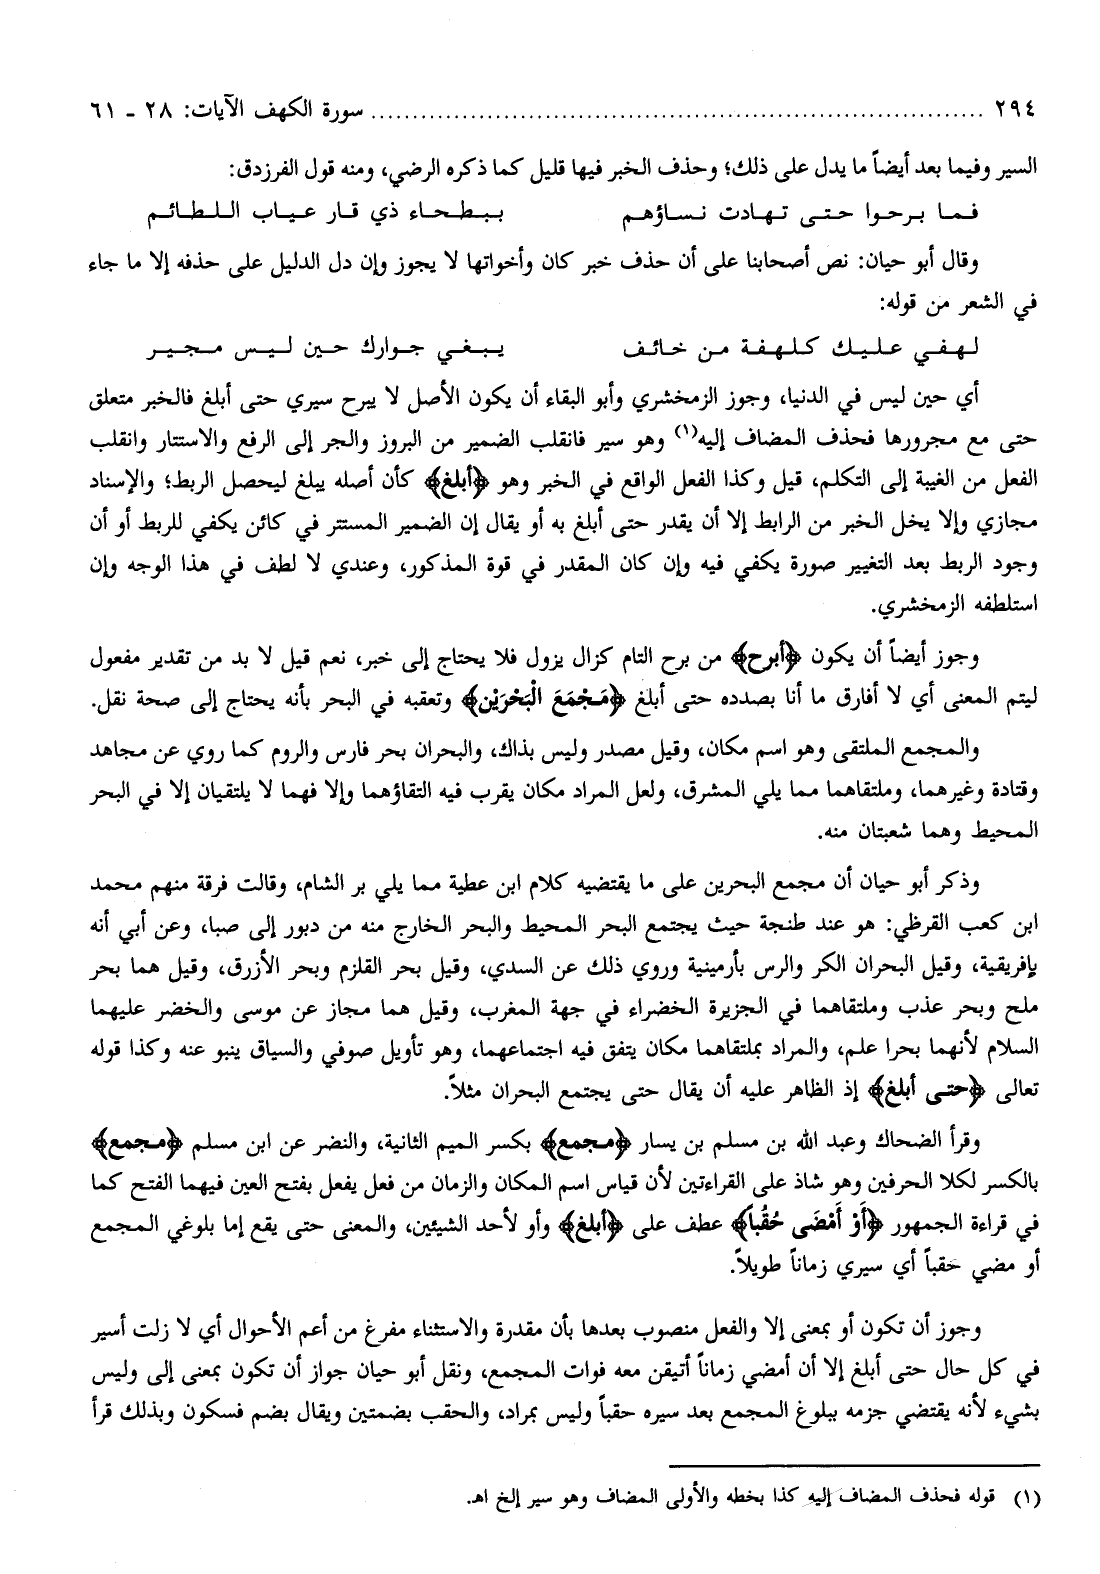 ٢٩٤ ........................................................................... سورة الكهف الآيات: ٢٨ - ٦١
السير وفيما بعد أيضاً ما يدل على ذلك؛ وحذف الخبر فيها قليل كما ذكره الرضي، ومنه قول الفرزدق:
فما برحوا حتى تهادت نساؤهم ببطحاء ذي قار عياب اللطائم
وقال أبو حيان: نص أصحابنا على أن حذف خبر كان وأخواتها لا يجوز وإن دل الدليل على حذفه إلا ما جاء
في الشعر من قوله:
لهفي عليك كلهفة من خائف يبغي جوارك حين ليس مجير
أي حين ليس في الدنيا، وجوز الزمخشري وأبو البقاء أن يكون الأصل لا يبرح سيري حتى أبلغ فالخبر متعلق
حتى مع مجرورها فحذف المضاف إليه(١) وهو سير فانقلب الضمير من البروز والجر إلى الرفع والاستتار وانقلب
الفعل من الغيبة إلى التكلم، قيل وكذا الفعل الواقع في الخبر وهو ﴿أبلغ﴾ كأن أصله يبلغ ليحصل الربط؛ والإسناد
مجازي وإلا يخل الخبر من الرابط إلا أن يقدر حتى أبلغ به أو يقال إن الضمير المستتر في كائن يكفي للربط أو أن
وجود الربط بعد التغيير صورة يكفي فيه وإن كان المقدر في قوة المذكور، وعندي لا لطف في هذا الوجه وإن
استلطفه الزمخشري.
وجوز أيضاً أن يكون ﴿أبرح﴾ من برح التام كزال يزول فلا يحتاج إلى خبر، نعم قيل لا بد من تقدير مفعول
ليتم المعنى أي لا أفارق ما أنا بصدده حتى أبلغ ﴿مَجْمَعَ الْبَحْرَيْنِ﴾ وتعقبه في البحر بأنه يحتاج إلى صحة نقل.
والمجمع الملتقى وهو اسم مكان، وقيل مصدر وليس بذاك، والبحران بحر فارس والروم كما روي عن مجاهد
وقتادة وغيرهما، وملتقاهما مما يلي المشرق، ولعل المراد مكان يقرب فيه التقاؤهما وإلا فهما لا يلتقيان إلا في البحر
المحيط وهما شعبتان منه.
وذكر أبو حيان أن مجمع البحرين على ما يقتضيه كلام ابن عطية مما يلي بر الشام، وقالت فرقة منهم محمد
ابن كعب القرظي: هو عند طنجة حيث يجتمع البحر المحيط والبحر الخارج منه من دبور إلى صبا، وعن أبي أنه
بإفريقية، وقيل البحران الكر والرس بأرمينية وروي ذلك عن السدي، وقيل بحر القلزم وبحر الأزرق، وقيل هما بحر
ملح وبحر عذب وملتقاهما في الجزيرة الخضراء في جهة المغرب، وقيل هما مجاز عن موسى والخضر عليهما
السلام لأنهما بحرا علم، والمراد بملتقاهما مكان يتفق فيه اجتماعهما، وهو تأويل صوفي والسياق ينبو عنه وكذا قوله
تعالى ﴿حتى أبلغ﴾ إذ الظاهر عليه أن يقال حتى يجتمع البحران مثلاً.
وقرأ الضحاك وعبد الله بن مسلم بن يسار ﴿مجمع﴾ بكسر الميم الثانية، والنضر عن ابن مسلم ﴿مجمع﴾
بالكسر لكلا الحرفين وهو شاذ على القراءتين لأن قياس اسم المكان والزمان من فعل يفعل بفتح العين فيهما الفتح كما
في قراءة الجمهور ﴿أَوْ أَمْضَى حُقُباً﴾ عطف على ﴿أبلغ﴾ وأو لأحد الشيئين، والمعنى حتى يقع إما بلوغي المجمع
أو مضي حقباً أي سيري زماناً طويلاً.
وجوز أن تكون أو بمعنى إلا والفعل منصوب بعدها بأن مقدرة والاستثناء مفرغ من أعم الأحوال أي لا زلت أسير
في كل حال حتى أبلغ إلا أن أمضي زماناً أتيقن معه فوات المجمع، ونقل أبو حيان جواز أن تكون بمعنى إلى وليس
بشيء لأنه يقتضي جزمه ببلوغ المجمع بعد سيره حقباً وليس بمراد، والحقب بضمتين ويقال بضم فسكون وبذلك قرأ
(١) قوله فحذف المضاف إليه كذا بخطه والأولى المضاف وهو سير إلخ اهـ.